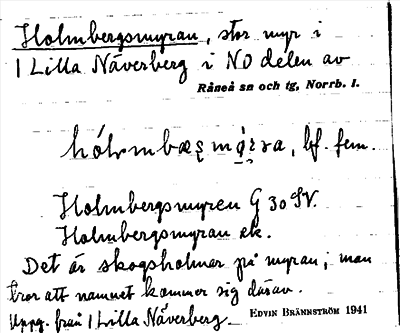 Holmbergsmyran, stor myr i
1 Lilla Näverberg i NO delen av
Råneå sn och tg, Norrb. l.
bf. fem.
Holmbergsmyren G 30 SV.
Holmbergsmyran ek.
Det är skogsholmar på myran, man
tror att namnet kommer sig därav.
Uppg. från 1 Lilla Näverberg
EDVIN BRÄNNSTRÖM 1941